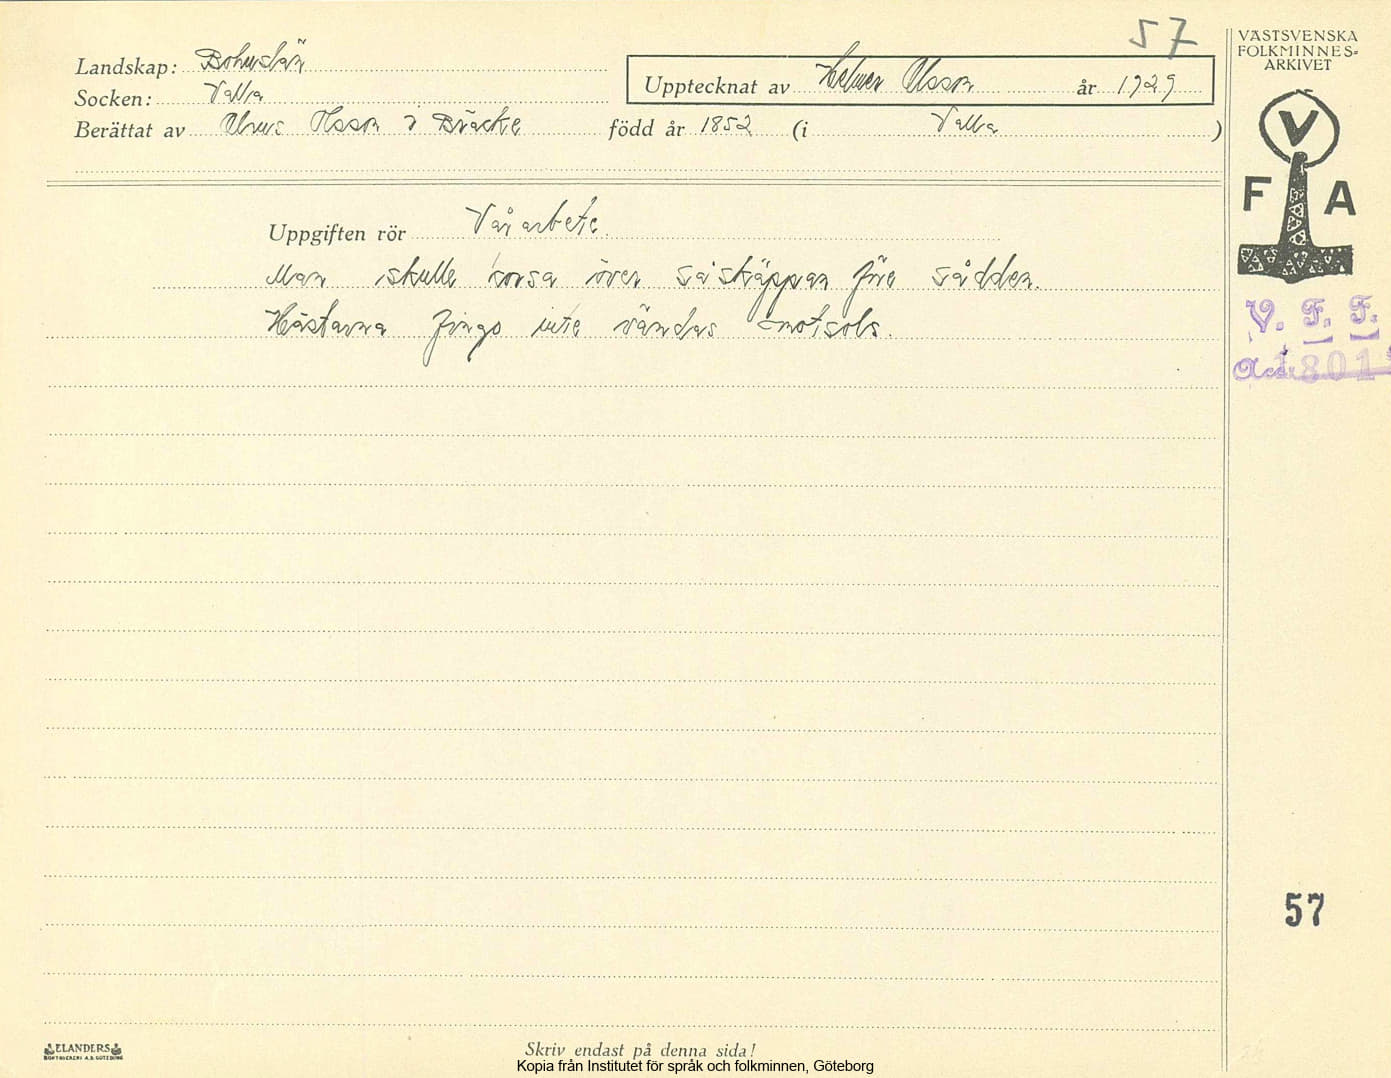 57
VÄSTSVENSKA
FOLKMINNES-
ARKIVET
Landskap: Bohuslän
Upptecknat av Helmer Olsson år 1929
Socken: Valla
Berättat av Olsson i Bräcke född år 1852 (i Valla )
V
F A
Uppgiften rör Vårarbete.
Man skulle korsa över såskäppan före sådden.
Hästarna fingo inte vändas motsols.
V. F. F.
Acc. 1801
57
ELANDERS
BOKTRYCKERI A.B. GÖTEBORG
Skriv endast på denna sida!
Kopia från Institutet för språk och folkminnen, Göteborg